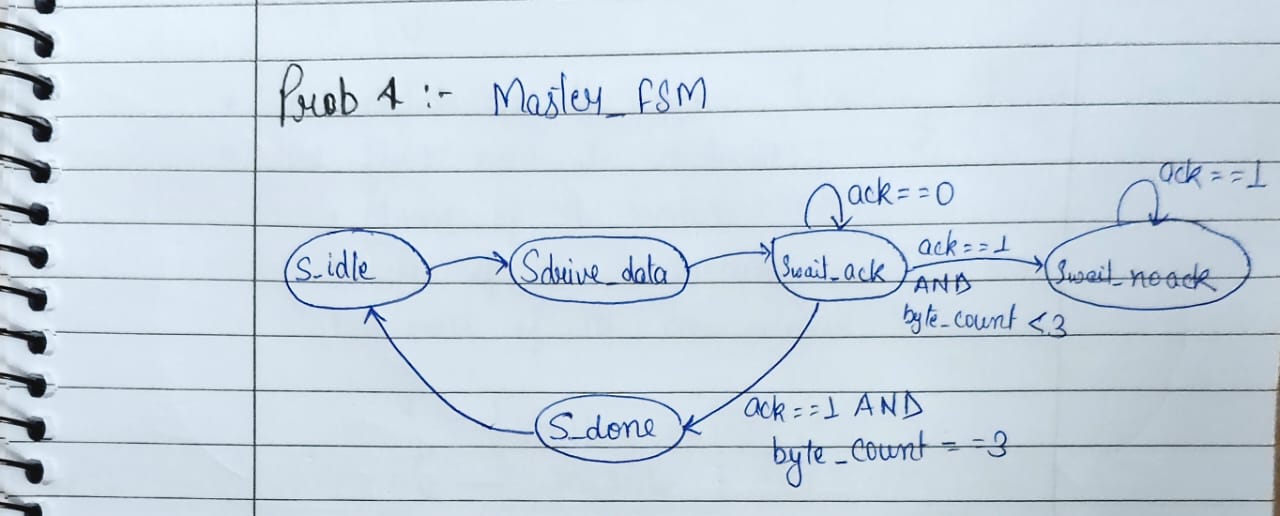 Prob 4 :- Master_FSM
ack==0
ack==1
S_idle
Sdrive_data
Swait_ack
ack==1
AND
byte_count <3
Swait_noack
S_done
ack==1 AND
byte_count ==3